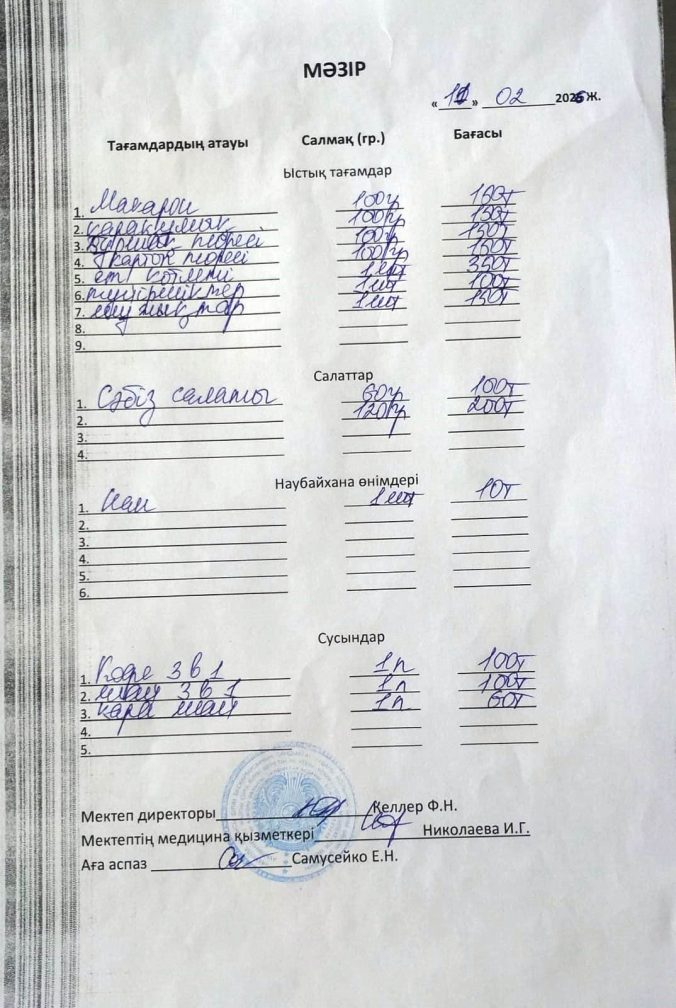 МӘЗІР
«11» 02 2025 Ж.
Тағамдардың атауы Салмақ (гр.) Бағасы
Ыстық тағамдар
1. Макарон 100гр 150т
2. қарақұмық 100гр 150т
3. Бұршақ пюресі 100гр 150т
4. Картоп пюресі 100гр 150т
5. ет котлеті 1шт 350т
6. 1шт 100т
7. 1шт 150т
8.
9.
Салаттар
1. Сәбіз салаты 60гр 100т
2. 120гр 200т
3.
4.
Наубайхана өнімдері
1. Нан 1шт 10т
2.
3.
4.
5.
6.
Сусындар
1. Кофе 3 в 1 1п 100т
2. шай 3 в 1 1п 100т
3. қара шай 1п 60т
4.
5.
Мектеп директоры Келлер Ф.Н.
Мектептің медицина қызметкері Николаева И.Г.
Аға аспаз Самусейко Е.Н.